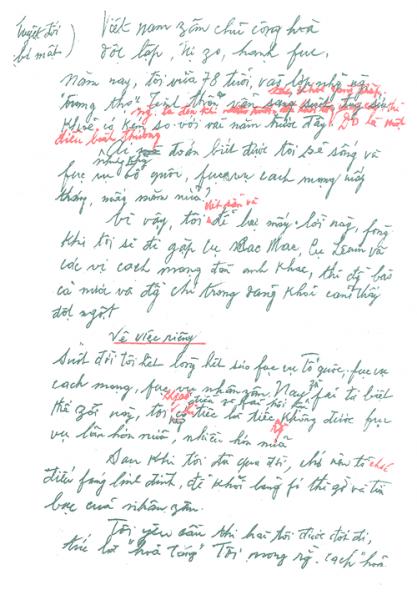 Tuyệt đối
bí mật
Việt nam zân chủ cộng hoà
độc lập, tự zo, hạnh fúc.
Năm nay, tôi vừa 78 tuổi, vào lớp những
"trung thọ". Tinh thần vẫn sáng suốt, tuy sức
khoẻ có kém so với vài năm trước đây. Đó là một
điều bình thường
Ai đoán biết được tôi sẽ sống và
fục vụ tổ quốc, fục vụ cách mạng mấy
tháng, mấy năm nữa?
Vì vậy, tôi viết sẵn và để lại mấy lời này, fòng
khi tôi sẽ đi gặp cụ Các Mác, Cụ Lênin và
các vị cách mạng đàn anh khác, thì đồng bào
cả nước và đồng chí trong đảng khỏi cảm thấy
đột ngột
Về việc riêng
Suốt đời tôi hết lòng hết sức fục vụ Tổ quốc, fục vụ
cách mạng, fục vụ nhân zân. Nay zù fải từ biệt
thế zới này, tôi chỉ tiếc là tiếc không được fục
vụ lâu hơn nữa, nhiều hơn nữa
Sau khi tôi đã qua đời, chớ nên tổ chức
điếu fúng linh đình, để khỏi lãng fí thì zờ và tiền
bạc của nhân zân.
Tôi yêu cầu thi hài tôi được đốt đi,
tức là "hoả táng". Tôi mong rằng cách "hoả